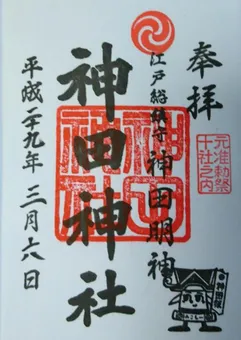 奉拝
江戸総鎮守 神田明神
神田神社
平成二十九年 三月六日
元准勅祭
十社之内
神田神社